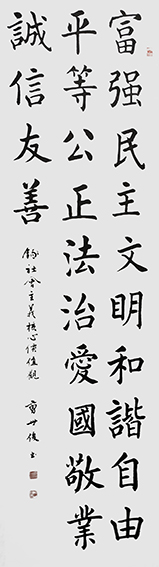 富强民主文明和諧自由
平等公正法治愛國敬業
誠信友善
錄社會主義核心價值觀